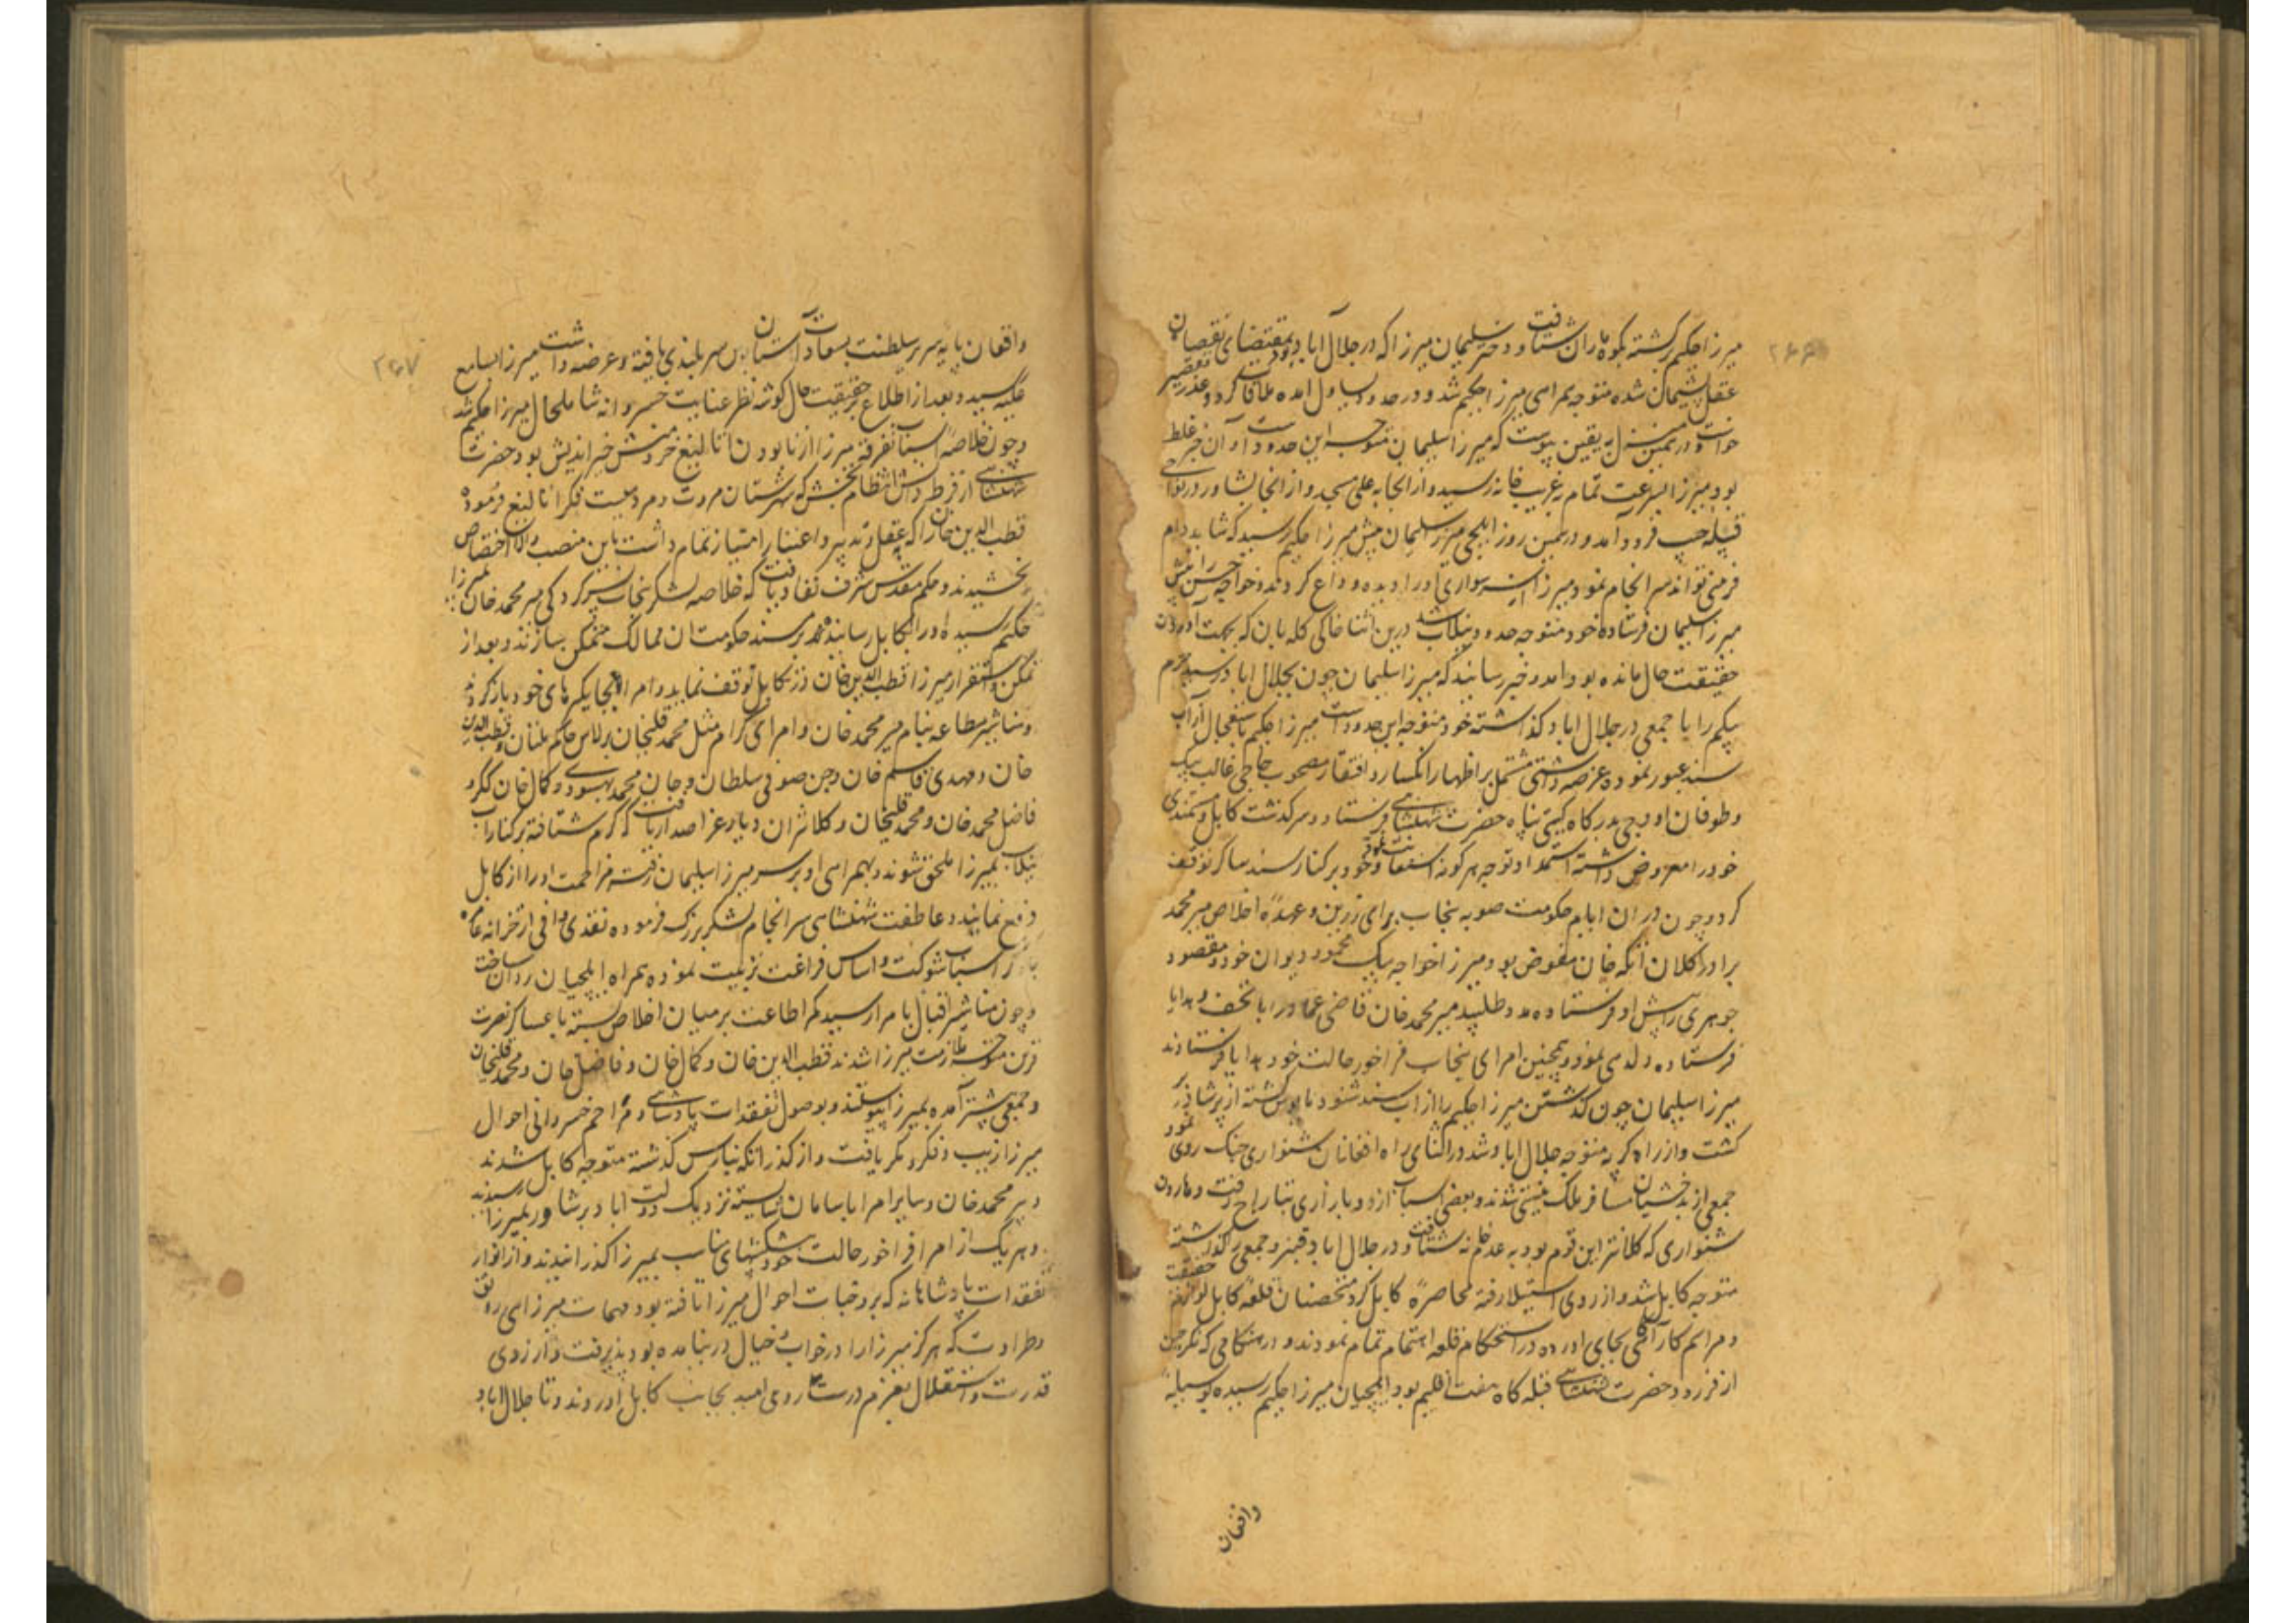 ۲۶۶
میرزا حکیم برگشته بکوه ماران شتافت و دختر سلیمان میرزا که در جلال آباد بود بمقتضای نقصان
عقل پشیمان شده متوجه همراهی میرزا حکیم شد و در حدود بساول آمده ملاقات کرد و عذر تقصیر
خواست و در همین منزل به یقین پیوست که میرزا سلیمان متوجه این حدود است و آن خبر غلط
بود میرزا بسرعت تمام بغریب خانه رسید و از انجا به علی مسجد و از انجا بشاور در نواحی
قبیله چپ فرود آمد و در همین روز ایلچی میرزا سلیمان پیش میرزا حکیم رسید که شاید دام
فریبی تواند سر انجام نمود میرزا سواری او را دیده وداع کردند و خواجه حسن را پیش
میرزا سلیمان فرستاده خود متوجه حدود نیلاب شد درین اثنا خاکی کله بان که بجهت آوردن
حقیقت حال مانده بود آمد و خبر رسانید که میرزا سلیمان چون بجلال اباد رسید حرم
بیکم را با جمعی در جلال اباد گذاشته خود متوجه این حدود است میرزا حکیم باستعجال از آب
سند عبور نموده عرضه داشتی مشتمل بر اظهار انکسار و افتقار مصحوب حاجی غالب بیک
و طوفان اوجی بدرگاه گیتی پناه حضرت شهنشاهی فرستاد و سرگذشت کابل و مستمندی
خود را معروض داشته استمداد توجه هر گونه استعانت نمود و خود بر کنار سند ساگر توقف
کرد و چون در ان ایام حکومت صوبه پنجاب برای زرین و عهدهٔ اخلاص میر محمد
برادر کلان اتکه خان مفوض بود میرزا خواجه بیک محمود دیوان خود و مقصود
جوهری را پیش او فرستاده مدد طلبید میر محمد خان قاضی عماد را با تحف و هدایا
فرستاده دلدهی نمود و همچنین امرای پنجاب فراخور حالت خود هدایا فرستادند
میرزا سلیمان چون گذشتن میرزا حکیم را از آب سند شنود مایوس گشته از پرشاور
گشت و از راه کریه متوجه جلال اباد شد در اثنای راه افغانان شنواری جنگ روی نمود
جمعی از بدخشیان مسافر ملک نیستی شدند و بعضی اسباب از دو بازاری بتاراج رفت و هارون
شنواری که کلانتر این قوم بود به عدم خانه شتافت و در جلال اباد قنبر و جمعی را گذاشته
متوجه کابل شد و از روی استیلا رفته محاصرهٔ کابل کرد متحصنان قلعه کابل لوازم حقیقت
و مراسم کار آگاهی بجای اورده در استحکام قلعه اهتمام تمام نمودند و در هنگامی که نگرچین
از فر ورود حضرت شهنشاهی قبله گاه هفت اقلیم بود ایلچیان میرزا حکیم رسیده بوسیله
واقفان
۲۶۷
واقفان پایه سریر سلطنت بسعادت آستان بوس سربلندی یافته و عرضه داشت میرزا بسامع
علیه رسید و بعد از اطلاع بر حقیقت حال گوشه نظر عنایت خسروانه شامل حال میرزا حکیم شد
و چون خلاصهٔ اسباب تفرقه میرزا از نابودن اتالیغ خردمنش خیر اندیش بود حضرت
شهنشاهی از فرط دانش انتظام بخش که شهرستان مروت و مردمیست فکر اتالیغ فرموده
قطب الدین خان را که بعقل و تدبیر و اعتبار امتیاز تمام داشت باین منصب والا اختصاص
بخشیدند و حکم مقدس شرف نفاذ یافت که خلاصه لشکر پنجاب بسرکردگی میر محمد خان بمیرزا
حکیم رسیده او را بکابل رسانیده بر مسند حکومت ان ممالک متمکن سازند و بعد از
تمکن و استقرار میرزا قطب الدین خان در کابل توقف نماید و امرا بجایگیرهای خود باز گردند
و مناشیر مطاعه بنام میر محمد خان و امرای کرام مثل محمد قلیخان برلاس حاکم ملتان و قطب الدین
خان و مهدی قاسم خان و حسن صوفی سلطان و جان محمد بهسودی و کمال خان ککر و
فاضل محمد خان و محمد قلیخان و کلانتران دیار عز اصدار یافت که گرم شتافته بر کنار آب
نیلاب بمیرزا ملحق شوند و بهمراهی او بر سر میرزا سلیمان رفته مزاحمت او را از کابل
دفع نمایند و عاطفت شهنشاهی سر انجام لشکر بزرگ فرموده نقدی وافی از خزانه عامره
با دیگر اسباب شوکت و اساس فراغت تربیت نموده همراه ایلچیان روان ساخت
و چون مناشیر اقبال بامرا رسید کمر اطاعت بر میان اخلاص بسته با عساکر نصرت
قرین متوجه ملازمت میرزا شدند قطب الدین خان و کمال خان و فاضل خان و محمد قلیخان
و جمعی پیشتر آمده بمیرزا پیوستند و بوصول تفقدات پادشاهی و مراحم خسروانی احوال
میرزا زیب و فکر دیگر یافت و از گذر اتک بنارس گذشته متوجه کابل شدند
و میر محمد خان و سایر امرا با سامان شایسته نزدیک دولت اباد پرشاور بمیرزا رسیدند
و هر یک از امرا فراخور حالت خود پیشکشهای مناسب بمیرزا گذرانیدند و از انوار
تفقدات پادشاهانه که بر وجنات احوال میرزا تافته بود مهمات میرزایی رونق
و طراوت که هرگز میرزا را در خواب و خیال در نیامده بود پذیرفت و از روی
قدرت و استقلال بعزم درست روی امید بجانب کابل اوردند و تا جلال اباد